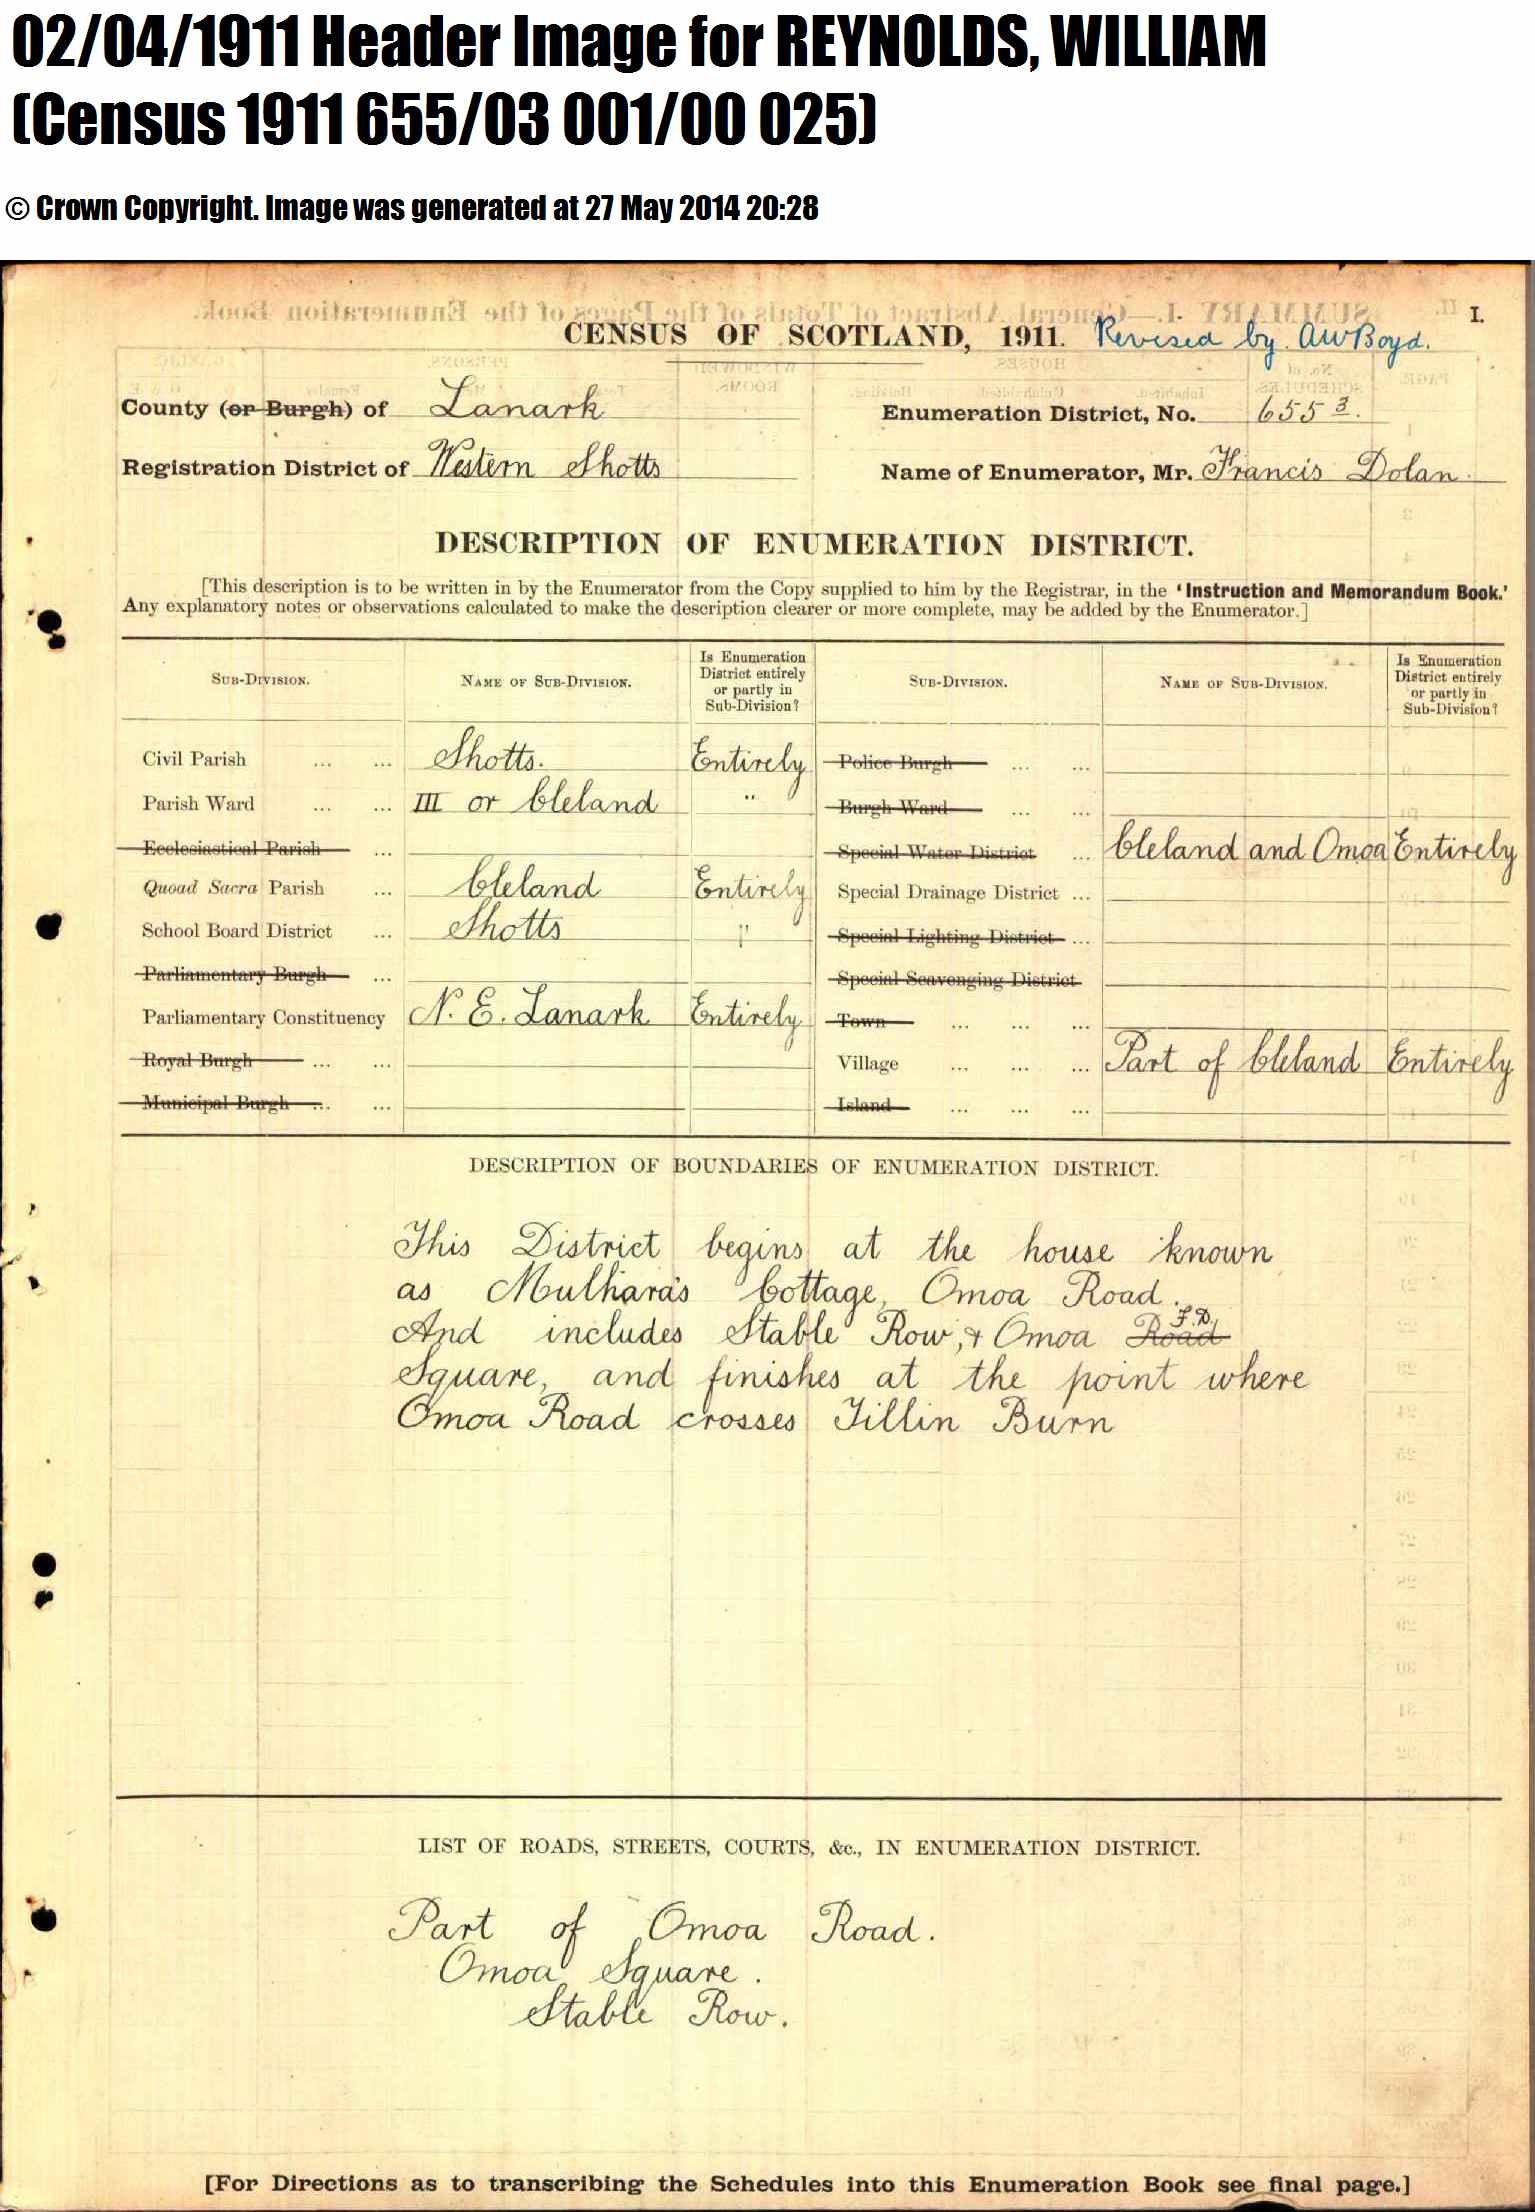 02/04/1911 Header Image for REYNOLDS, WILLIAM
(Census 1911 655/03 001/00 025)
© Crown Copyright. Image was generated at 27 May 2014 20:28
I.
CENSUS OF SCOTLAND, 1911. Revised by AWBoyd.
County (or Burgh) of Lanark Enumeration District, No. 655 3.
Registration District of Western Shotts Name of Enumerator, Mr. Francis Dolan.
DESCRIPTION OF ENUMERATION DISTRICT.
[This description is to be written in by the Enumerator from the Copy supplied to him by the Registrar, in the 'Instruction and Memorandum Book.'
Any explanatory notes or observations calculated to make the description clearer or more complete, may be added by the Enumerator.]
SUB-DIVISION. NAME OF SUB-DIVISION. Is Enumeration District entirely or partly in Sub-Division? SUB-DIVISION. NAME OF SUB-DIVISION. Is Enumeration District entirely or partly in Sub-Division?
Civil Parish ... ... Shotts. Entirely Police Burgh ... ...
Parish Ward ... ... III or Cleland " Burgh Ward ... ...
Ecclesiastical Parish ... Special Water District ... Cleland and Omoa Entirely
Quoad Sacra Parish ... Cleland Entirely Special Drainage District ...
School Board District ... Shotts " Special Lighting District ...
Parliamentary Burgh ... Special Scavenging District
Parliamentary Constituency N. E. Lanark Entirely Town ... ... ...
Royal Burgh ... ... Village ... ... ... Part of Cleland Entirely
Municipal Burgh ... ... Island ... ... ...
DESCRIPTION OF BOUNDARIES OF ENUMERATION DISTRICT.
This District begins at the house known
as Mulhara's Cottage, Omoa Road.
And includes Stable Row, & Omoa Road F.D.
Square, and finishes at the point where
Omoa Road crosses Tillin Burn
LIST OF ROADS, STREETS, COURTS, &c., IN ENUMERATION DISTRICT.
Part of Omoa Road.
Omoa Square.
Stable Row.
[For Directions as to transcribing the Schedules into this Enumeration Book see final page.]